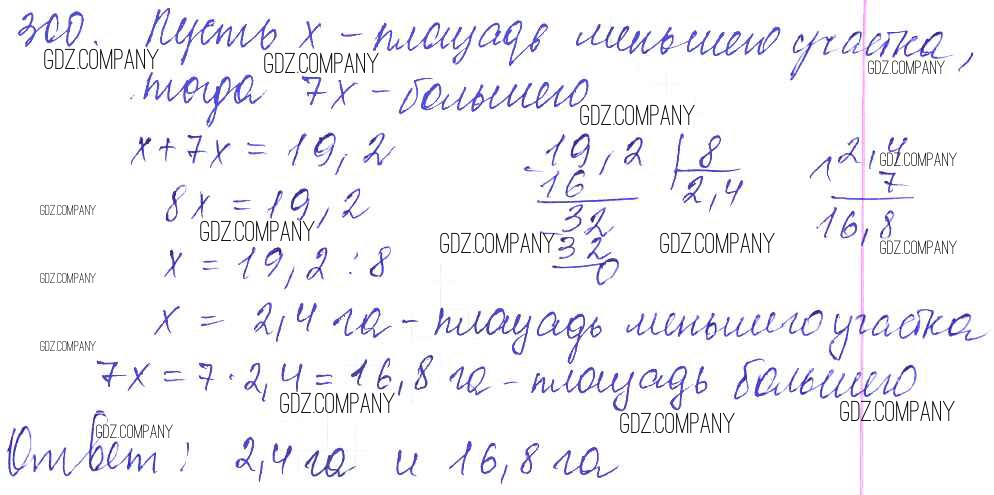 300. Пусть x - площадь меньшего участка,
GDZ.COMPANY GDZ.COMPANY GDZ.COMPANY
тогда 7x - большего
GDZ.COMPANY
x + 7x = 19,2
8x = 19,2
x = 19,2 : 8
- 19,2 | 8
16 2,4
- 32
32
0
× 2,4
7
16,8
GDZ.COMPANY GDZ.COMPANY
GDZ.COMPANY GDZ.COMPANY GDZ.COMPANY GDZ.COMPANY
GDZ.COMPANY
x = 2,4 га - площадь меньшего участка
GDZ.COMPANY
7x = 7 · 2,4 = 16,8 га - площадь большего
GDZ.COMPANY GDZ.COMPANY GDZ.COMPANY
GDZ.COMPANY
Ответ: 2,4 га и 16,8 га